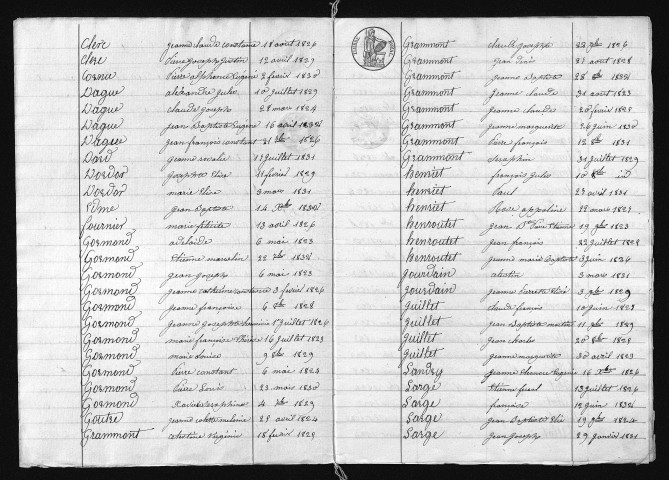 Clerc jeanne claude constance 18 aout 1826
Clerc pierre joseph 12 avril 1829
Cornu Pierre alphonse Eugène 2 fevrier 1830
Dague alexandre jules 10 juillet 1829
Dague claude joseph 28 mars 1824
Dague jean Baptiste Eugène 16 avril
Dague jean françois constant 21 1826
Dard jeanne rosalie 1 juillet 1831
Dordor josephte Elise 11 fevrier 1829
Dordor marie Elise 3 mars 1831
Edme jean Baptiste 14 Xbre
fournier marie felicité 13 avril 1826
Gormond adelaide 6 mai 1823
Gormond Etienne marcelin 22
Gormond jean joseph 6 mai 1823
Gormond jeanne catherine constance 3 fevrier 1826
Gormond jeanne françoise 6 1828
Gormond jeanne josephte 1er juillet 1824
Gormond marie françoise 16 juillet 1823
Gormond marie louise 9 8bre 1829
Gormond Pierre constant 6 mai 1823
Gormond Pierre Louis 23 mars 1830
Gormond Xavier seraphin 4 1829
Goutre jeanne colette melanie 29 avril 1824
Grammont celestine virginie 18 fevrier 1829
Grammont claude joseph 23 1826
Grammont jean 21 aout 1828
Grammont jeanne Baptiste 28
Grammont jeanne claude 31 aout 1823
Grammont jeanne claude 20 fevrier 1828
Grammont jeanne marguerite 26 juin 1830
Grammont Pierre françois 12 8bre 1831
Grammont seraphin 31 juillet 1829
henriet françois jules 10
henriet Paul 27 avril 1831
henriet Rose appoline 22 mars 1823
henroutet jean Etienne 19 1823
henroutet jean françois 22 juillet 1828
henroutet jeanne marie Baptiste 3 juin 1826
jourdain celestin 3 mars 1831
jourdain jeanne pierrette 3 1829
juillet claude françois 10 juin 1823
juillet jean Baptiste 11 1829
juillet jean charles 20 8bre 1828
juillet jeanne marguerite 30 avril 1823
Landry jeanne Eugenie 16 Xbre 1826
Large Etienne 13 juillet 1826
Large françoise 12 juin
Large jean Baptiste 19 1824
Large jean joseph 29 janvier 1831